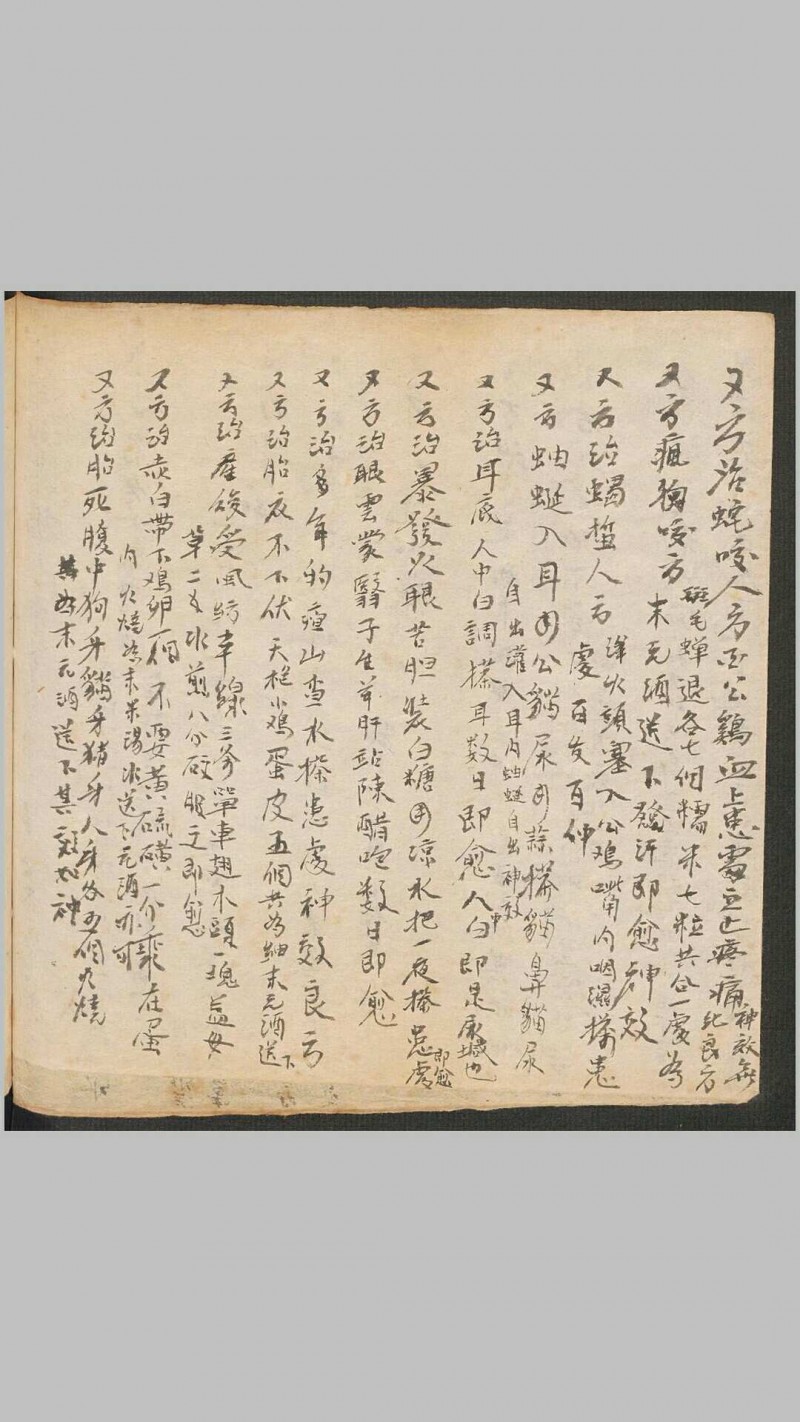 又方治蛇咬人方 公鷄血上患處立止疼痛神效無
比良方
又方瘋狗咬方 斑毛蟬退各七個糯米七粒共合一處為
末元酒送下發汗即愈神效
又方治蝎蜇人方 火頭塞入公鸡嘴內咽濕搽患
處百发百仲
又方蚰蜒入耳用公貓尿用蒜搽貓鼻貓尿
自出灌入耳內蚰蜒自出神效
又方治耳底人中白調搽耳数日即愈人中白即是尿堿也
又方治暴發火眼苦胆装白糖用凉水把一夜搽患處即愈
又方治眼雲蒙翳子生羊肝站陳醋吃数日即愈
又方治多年的瘡山查水搽患處神效良方
又方治胎衣不下伏天抱小鸡蛋皮五個共為細末元酒送下
又方治產後受風紡車線三 單車翅木頭一塊益母
草二 水煎八分 服之即愈
又方治赤白帶下鸡卵一個不要黄硫磺一分 在蛋
內火燒為末米湯水送下元酒亦可
又方治胎死腹中狗牙貓牙猪牙人牙各 個火燒
共為末元酒送下其效如神